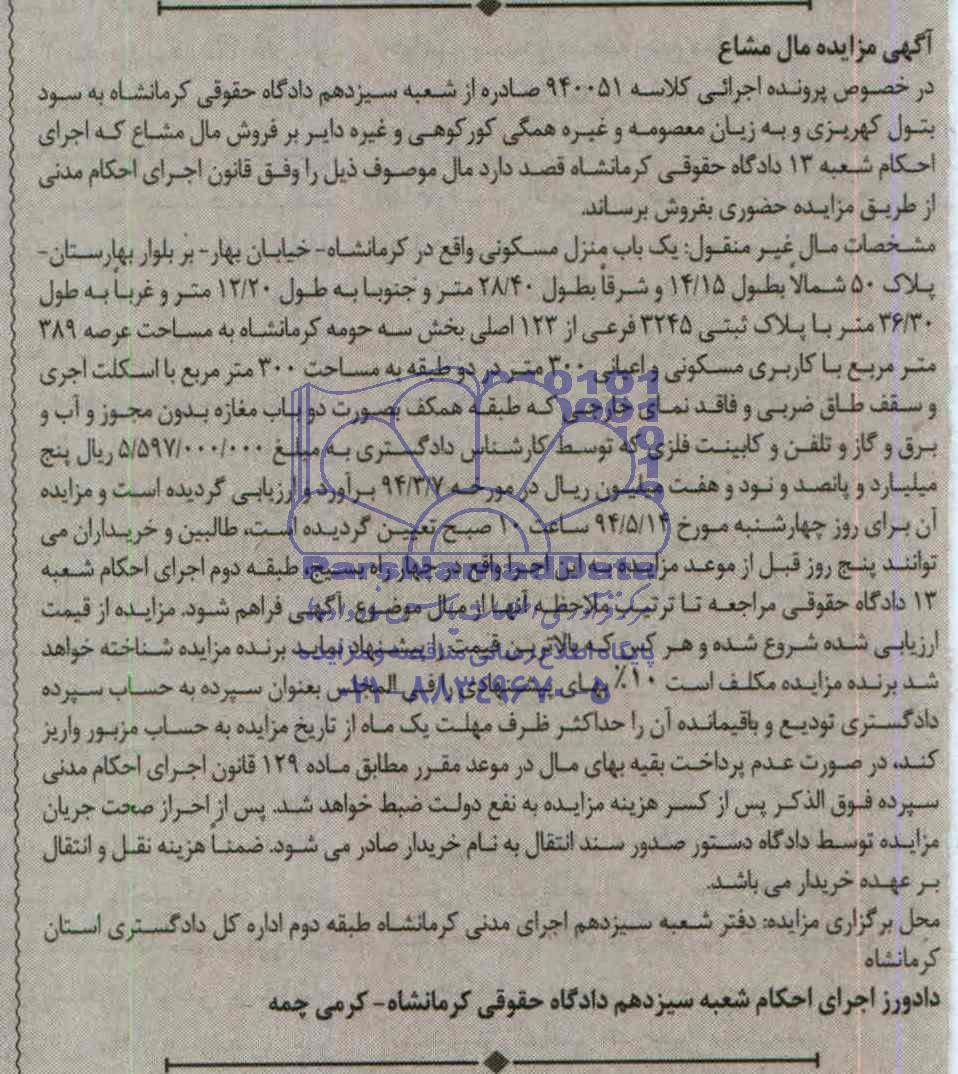 آگهی مزایده مال مشاع
در خصوص پرونده اجرائی کلاسه ۹۴۰۰۵۱ صادره از شعبه سیزدهم دادگاه حقوقی کرمانشاه به سود
بتول کهریزی و به زیان معصومه و غیره همگی کورکوهی و غیره دایر بر فروش مال مشاع که اجرای
احکام شعبه ۱۳ دادگاه حقوقی کرمانشاه قصد دارد مال موصوف ذیل را وفق قانون اجرای احکام مدنی
از طریق مزایده حضوری بفروش برساند.
مشخصات مال غیر منقول: یک باب منزل مسکونی واقع در کرمانشاه- خیابان بهار- بر بلوار بهارستان-
پلاک ۵۰ شمالاً بطول ۱۴/۱۵ و شرقاً بطول ۲۸/۴۰ متر و جنوبا به طول ۱۲/۲۰ متر و غرباً به طول
۳۶/۳۰ متر با پلاک ثبتی ۳۲۴۵ فرعی از ۱۲۳ اصلی بخش سه حومه کرمانشاه به مساحت عرصه ۳۸۹
متر مربع با کاربری مسکونی و اعیانی ۳۰۰ متر در دو طبقه به مساحت ۳۰۰ متر مربع با اسکلت اجری
و سقف طاق ضربی و فاقد نمای خارجی که طبقه همکف بصورت دو باب مغازه بدون مجوز و آب و
برق و گاز و تلفن و کابینت فلزی که توسط کارشناس دادگستری به مبلغ ۵/۵۹۷/۰۰۰/۰۰۰ ریال پنج
میلیارد و پانصد و نود و هفت میلیون ریال در مورخه ۹۴/۳/۷ برآورد و ارزیابی گردیده است و مزایده
آن برای روز چهارشنبه مورخ ۹۴/۵/۱۴ ساعت ۱۰ صبح تعیین گردیده است، طالبین و خریداران می
توانند پنج روز قبل از موعد مزایده به این اجرا واقع در چهار راه بسیج، طبقه دوم اجرای احکام شعبه
۱۳ دادگاه حقوقی مراجعه تا ترتیب ملاحظه آنها از مال موضوع آگهی فراهم شود. مزایده از قیمت
ارزیابی شده شروع شده و هر کس که بالاترین قیمت را پیشنهاد نماید برنده مزایده شناخته خواهد
شد برنده مزایده مکلف است ۱۰٪ بهای پیشنهادی را فی المجلس بعنوان سپرده به حساب سپرده
دادگستری تودیع و باقیمانده آن را حداکثر ظرف مهلت یک ماه از تاریخ مزایده به حساب مزبور واریز
کند، در صورت عدم پرداخت بقیه بهای مال در موعد مقرر مطابق ماده ۱۲۹ قانون اجرای احکام مدنی
سپرده فوق الذکر پس از کسر هزینه مزایده به نفع دولت ضبط خواهد شد. پس از احراز صحت جریان
مزایده توسط دادگاه دستور صدور سند انتقال به نام خریدار صادر می شود. ضمناً هزینه نقل و انتقال
بر عهده خریدار می باشد.
محل برگزاری مزایده: دفتر شعبه سیزدهم اجرای مدنی کرمانشاه طبقه دوم اداره کل دادگستری استان
کرمانشاه
دادورز اجرای احکام شعبه سیزدهم دادگاه حقوقی کرمانشاه- کرمی چمه
پایگاه اطلاع رسانی مناقصه و مزایده
۰۲۱-۸۸۳۴۹۶۷۰-۵